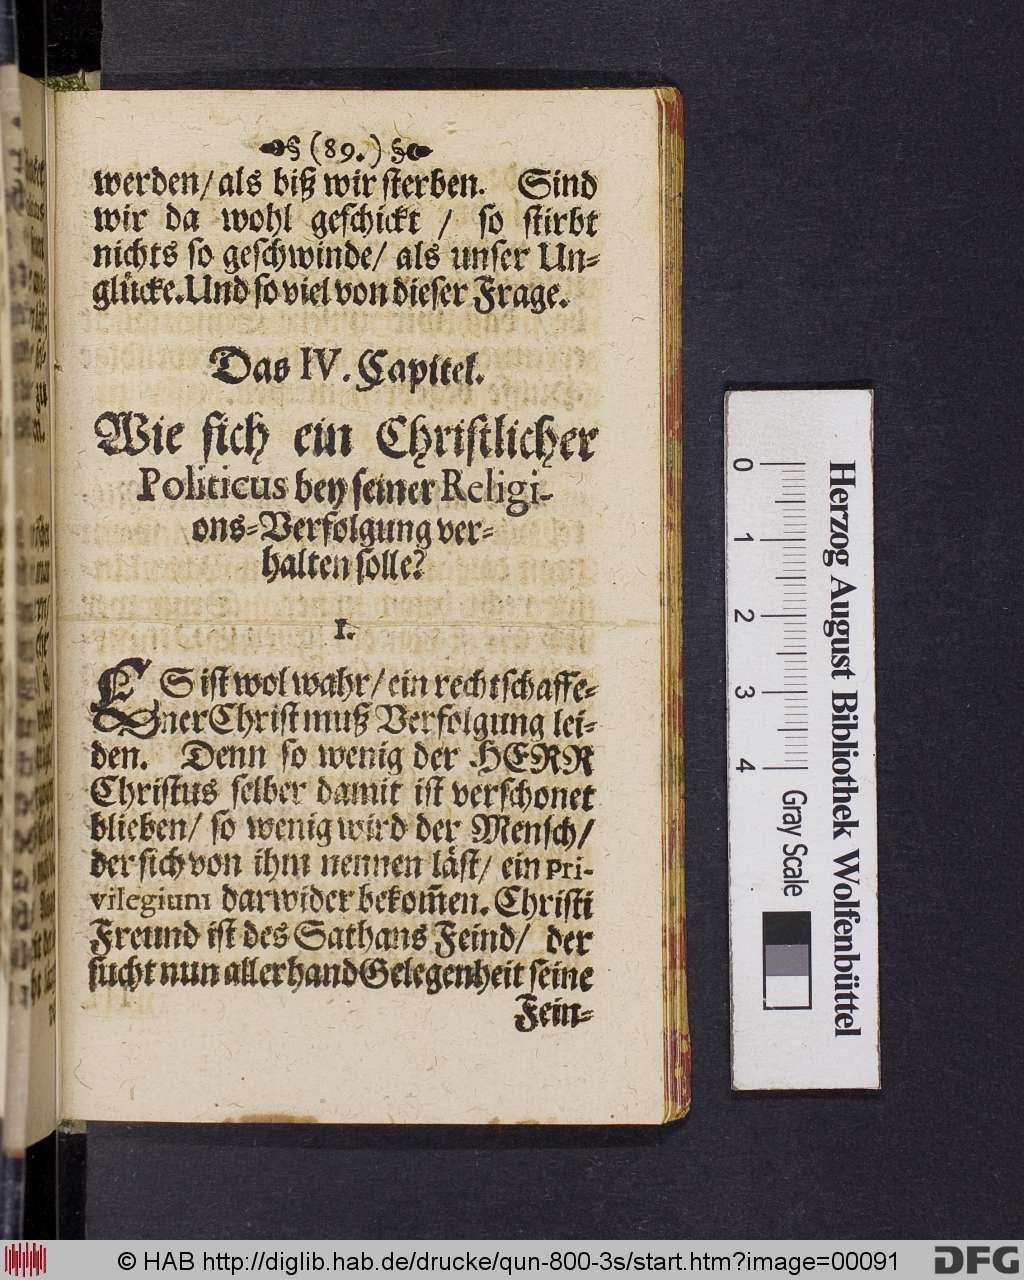 § (89.) §
werden/ als biß wir sterben. Sind
wir da wohl geschickt / so stirbt
nichts so geschwinde/ als unser Un-
glücke. Und so viel von dieser Frage.
Das IV. Capitel.
Wie sich ein Christlicher
Politicus bey seiner Religi-
ons-Verfolgung ver-
halten solle?
I.
ES ist wol wahr/ ein rechtschaffe-
ner Christ muß Verfolgung lei-
den. Denn so wenig der HERR
Christus selber damit ist verschonet
blieben/ so wenig wird der Mensch/
der sich von ihm nennen läst/ ein Pri-
vilegium darwider bekom̃en. Christi
Freund ist des Sathans Feind/ der
sucht nun allerhand Gelegenheit seine
Fein-
0 1 2 3 4
Gray Scale
Herzog August Bibliothek Wolfenbüttel
© HAB http://diglib.hab.de/drucke/qun-800-3s/start.htm?image=00091
DFG